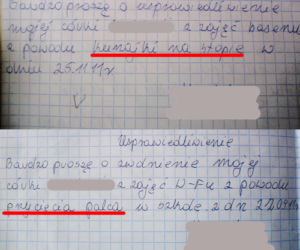 Bardzo proszę o usprawiedliwienie
mojej córki z zajęć basenu
z powodu kurzajki na stopie w
dniu 25.11.11r
Usprawiedliwienie
Bardzo proszę o zwolnienie mojej
córki z zajęć W-Fu z powodu
przycięcia palca w szkole z dn